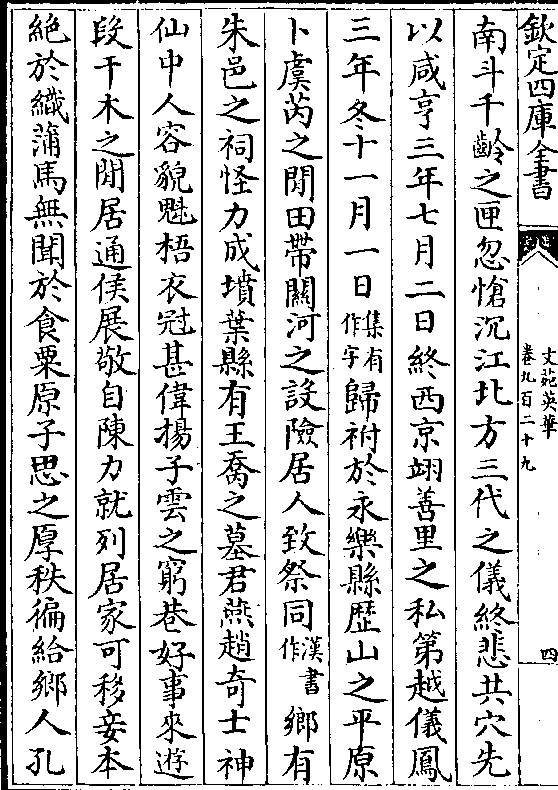 欽定四庫全書
文苑英華
卷九百二十九
四
南斗千齡之匣忽愴沉江北方三代之儀終悲共穴先
以咸亨三年七月二日終西京翊善里之私第越儀鳳
三年冬十一月一日集有作字歸祔於永樂縣歴山之平原
卜虞芮之閒田帶關河之設險居人致祭同漢書作鄉有
朱邑之祠怪力成墳葉縣有王喬之墓君燕趙奇士神
仙中人容貌魁梧衣冠甚偉揚子雲之窮巷好事來遊
段干木之閒居通侯展敬自陳力就列居家可移妾本
絶於織蒲馬無聞於食粟原子思之厚秩徧給鄉人孔